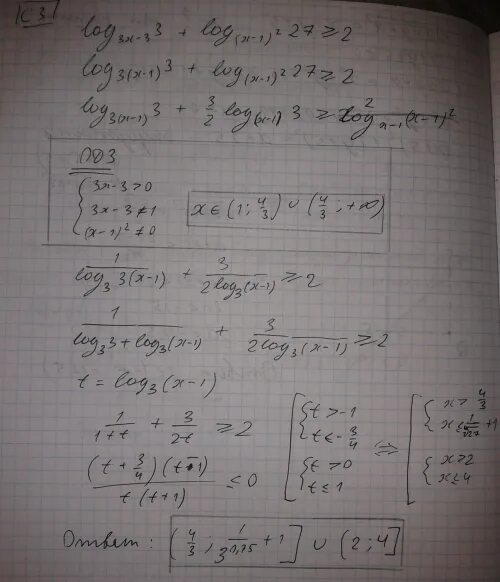 C3
log_{3x-3} 3 + log_{(x-1)^2} 27 ≥ 2
log_{3(x-1)} 3 + log_{(x-1)^2} 27 ≥ 2
log_{3(x-1)} 3 + 3/2 log_{(x-1)} 3 ≥ 2
ОДЗ
{ 3x-3 > 0
3x-3 ≠ 1
(x-1)^2 ≠ 0
x ∈ (1; 4/3) ∪ (4/3; +∞)
1/(log_3 3(x-1)) + 3/(2log_3(x-1)) ≥ 2
1/(log_3 3 + log_3(x-1)) + 3/(2log_3(x-1)) ≥ 2
t = log_3(x-1)
1/(1+t) + 3/(2t) ≥ 2
((t + 3/4)(t-1))/(t(t+1)) ≤ 0
[ { t > -1
t ≤ -3/4
{ t > 0
t ≤ 1
⇔ [ { x > 4/3
x ≤ 1/⁴√27 + 1
{ x > 2
x ≤ 4
Ответ: (4/3; 1/3^{0,75} + 1] ∪ (2; 4]